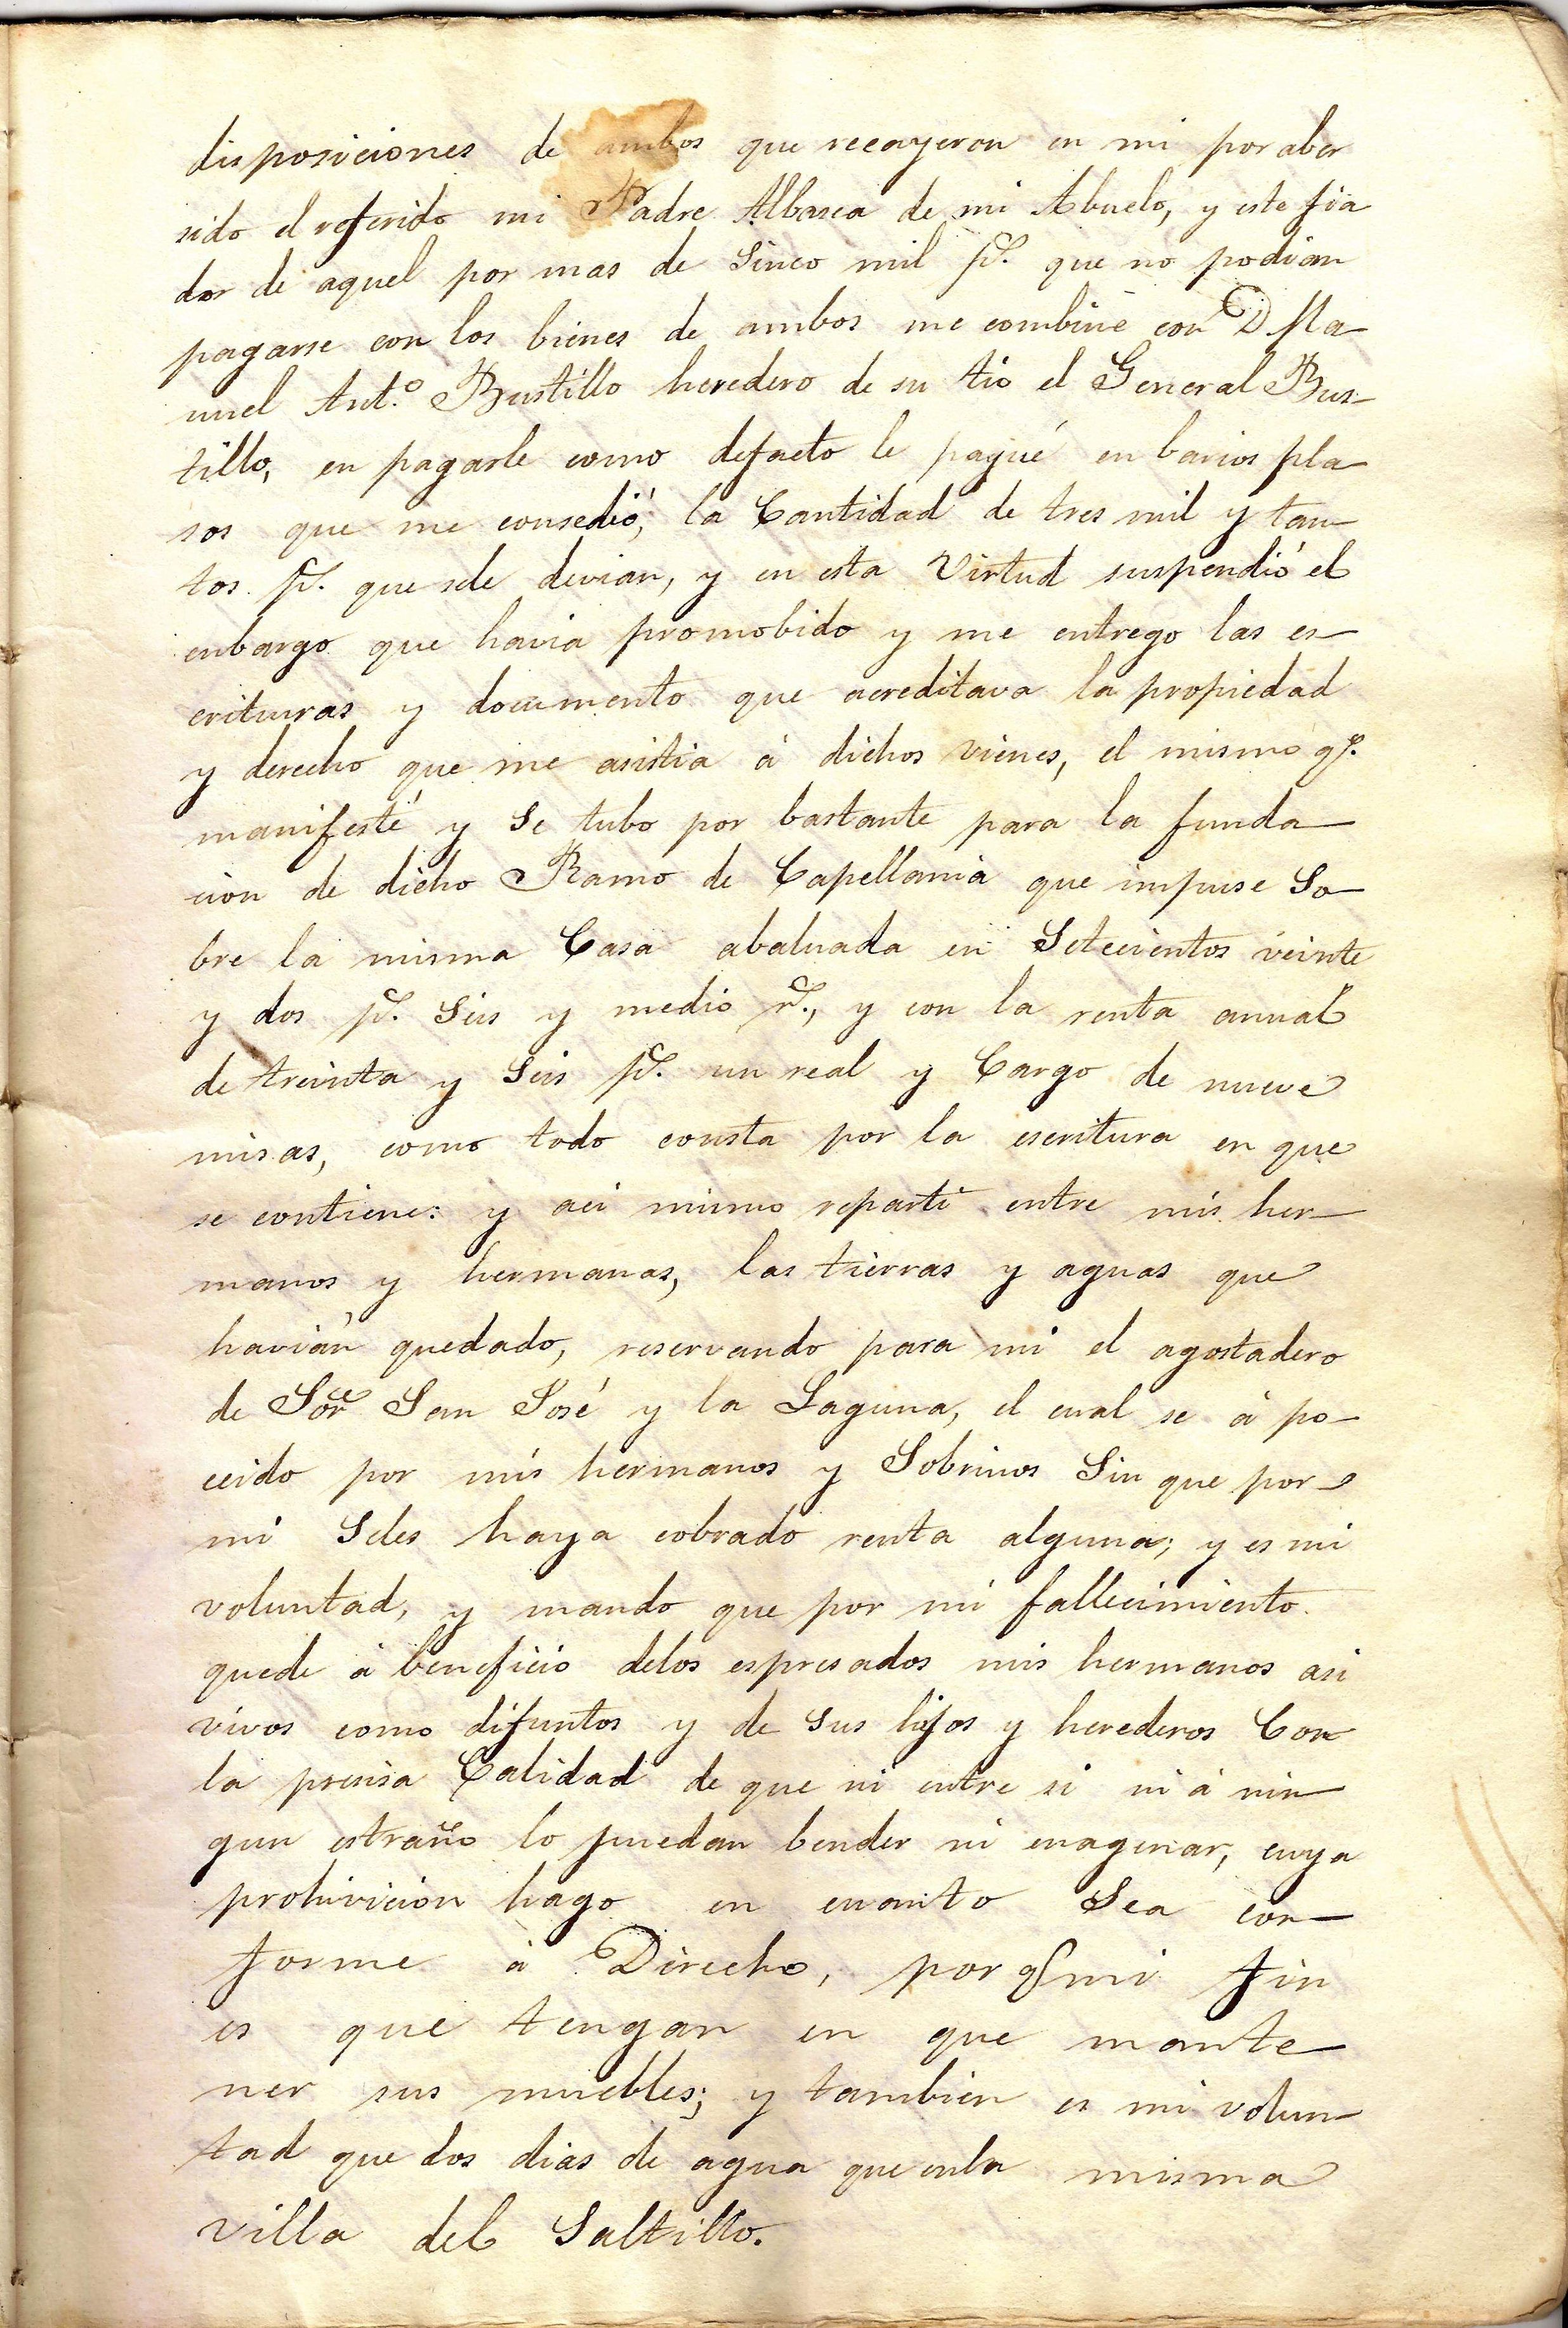 disposiciones de ambos que recayeron en mi por aber
sido el referido mi Padre Albasea de mi Abuelo, y este fia
dor de aquel por mas de Sinco mil p.s que no podian
pagarse con los bienes de ambos me combiné con D Ma-
nuel Ant.o Bustillo heredero de su tio el General Bus-
tillo, en pagarle como defacto le pagué en barios pla-
sos que me consedió, la Cantidad de tres mil y tan-
tos p.s que sele devian, y en esta Virtud suspendió el
enbargo que havia promobido y me entrego las es-
crituras y documento que acreditava la propiedad
y derecho que me asistia á dichos vienes, el mismo q.e
manifesté y Se tubo por bastante para la funda-
cion de dicho Ramo de Capellania que impuse So-
bre la misma Casa abaluada en Setecientos veinte
y dos p.s Seis y medio r.s, y con la renta anual
de treinta y Seis p.s un real y Cargo de nueve
misas, como todo consta por la escritura en que
se contiene: y aci mismo reparti entre mis her-
manos y hermanas, las tierras y aguas que
havián quedado, reservando para mi el agostadero
de Sor San José y la Laguna, el cual se á po-
ceido por mis hermanos y Sobrinos Sin que por
mi Seles haya cobrado renta alguna; y es mi
voluntad, y mando que por mi fallecimiento
quede á beneficio delos espresados mis hermanos asi
vivos como difuntos y de Sus hijos y herederos Con
la presisa Calidad de que ni entre si ni á nin-
gun estraño lo puedan bender ni enagenar, cuya
prohivicion hago en cuanto Sea con-
forme á Direcho, por q mi fin
es que tengan en que mante-
ner sus muebles; y tambien es mi volun-
tad que dos dias de agua que enla misma
villa del Saltillo.